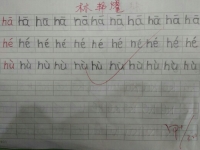 林
hā hā hā hā hā hā hā hā hā hā hā
hé hé hé hé hé hé hé hé hé hé hé
hù hù hù hù hù hù hù hù hù hù hù